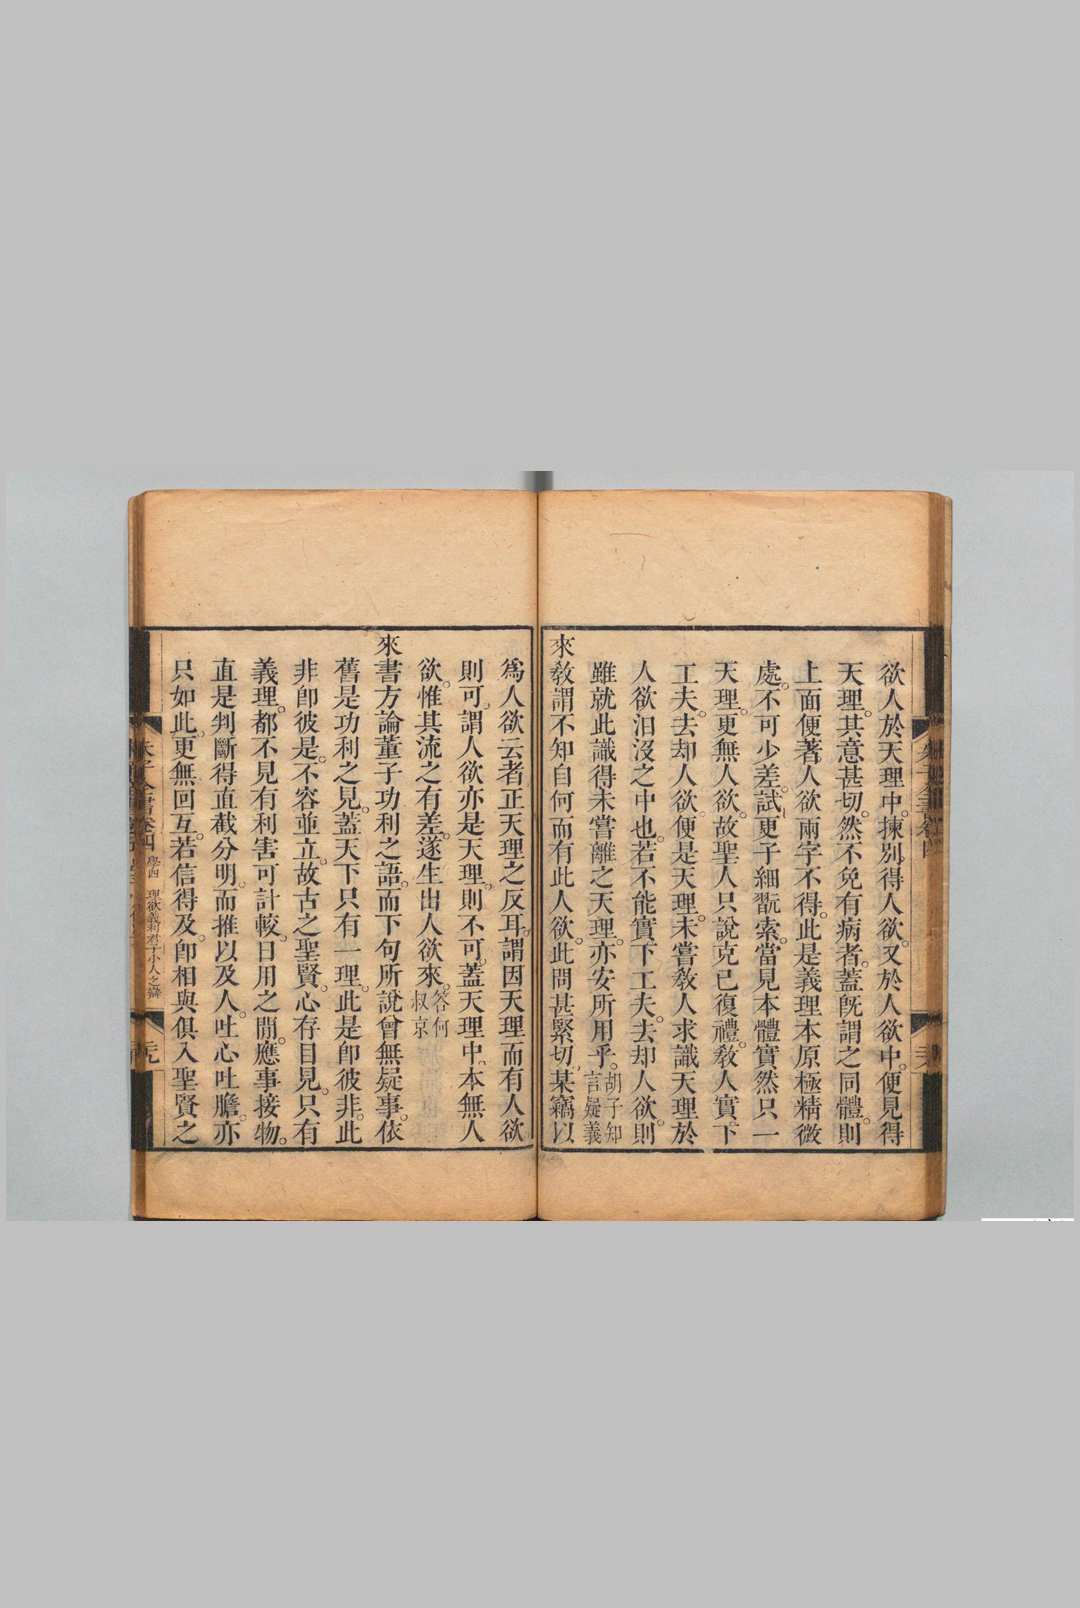 欲人於天理中。揀別得人欲。又於人欲中。便見得
天理。其意甚切。然不免有病者。蓋旣謂之同體。則
上面便著人欲兩字不得。此是義理本原極精微
處。不可少差。試更子細翫索。當見本體實然只一
天理。更無人欲。故聖人只說克己復禮。敎人實下
工夫。去却人欲。便是天理。未嘗敎人求識天理於
人欲汨沒之中也。若不能實下工夫。去却人欲。則
雖就此識得未嘗離之天理。亦安所用乎。胡子知言疑義
來敎謂不知自何而有此人欲。此問甚緊切。某竊以
爲人欲云者正天理之反耳。謂因天理而有人欲
則可。謂人欲亦是天理。則不可。蓋天理中。本無人
欲。惟其流之有差。遂生出人欲來。答何叔京
來書方論董子功利之語。而下句所說曾無疑事。依
舊是功利之見。蓋天下只有一理。此是卽彼非。此
非卽彼是。不容並立。故古之聖賢。心存目見。只有
義理。都不見有利害可計較。日用之閒。應事接物。
直是判斷得直截分明。而推以及人。吐心吐膽。亦
只如此。更無回互。若信得及。卽相與俱入聖賢之
朱子全書卷四 學四 理欲義利君子小人之辨